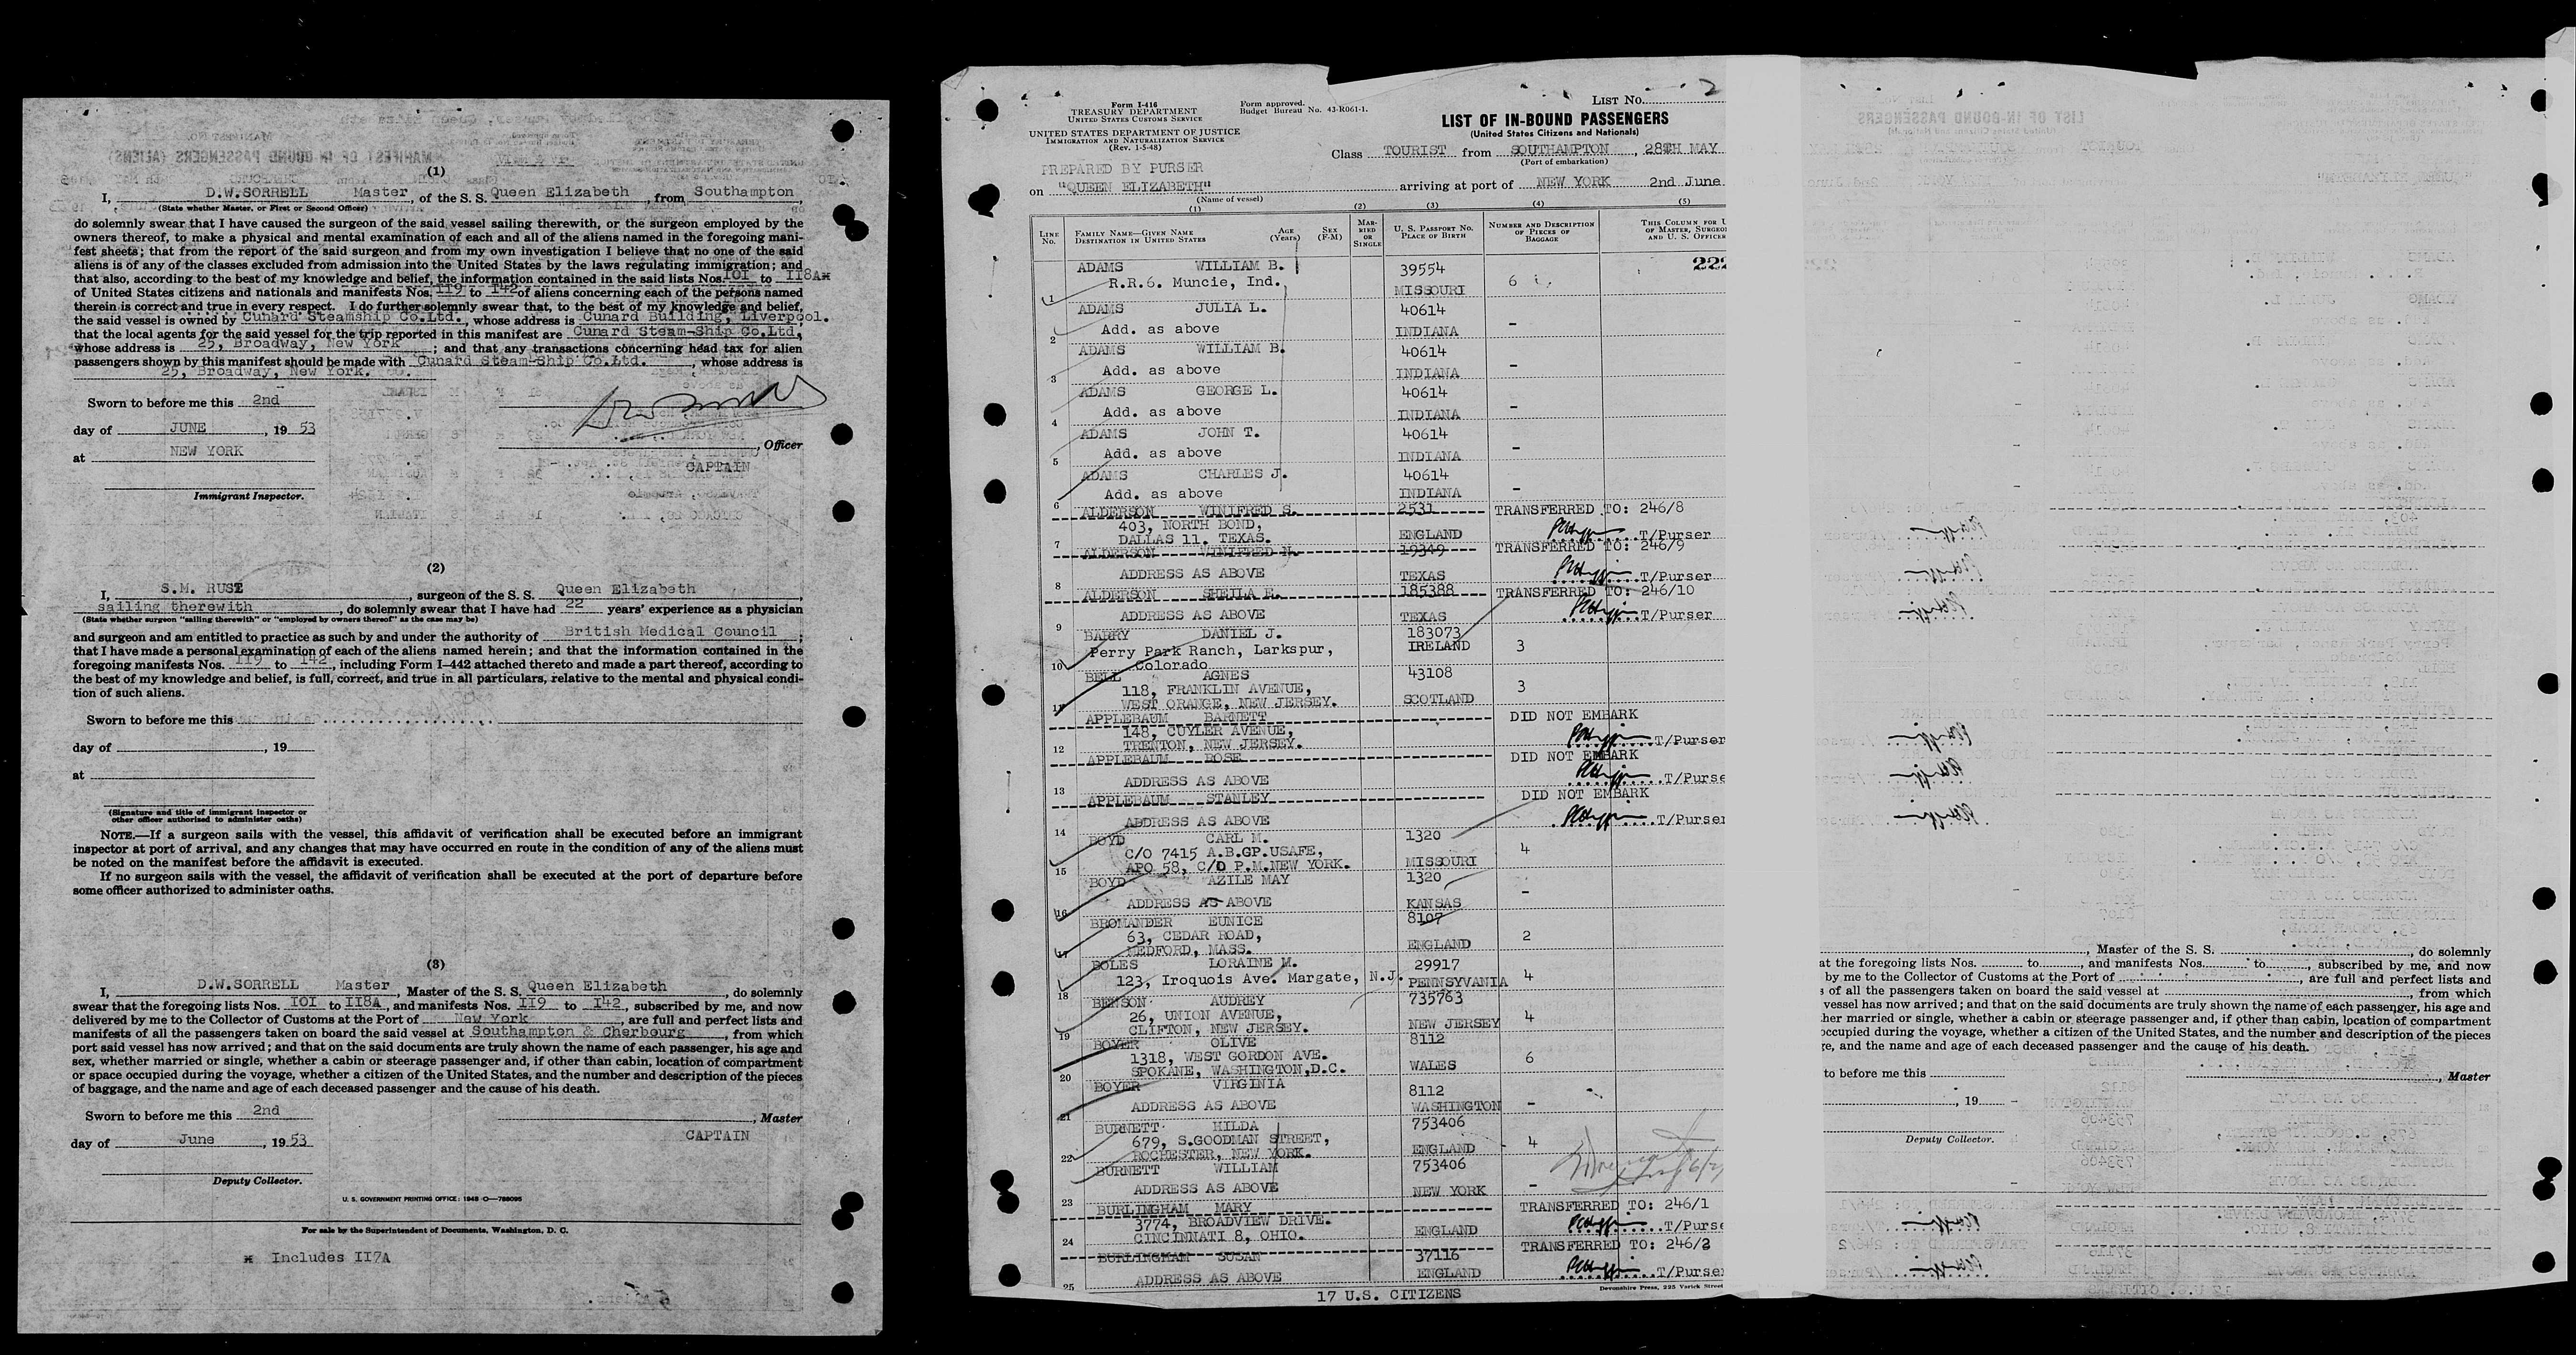 (1)
I, D.W.SORRELL Master, of the S. S. Queen Elizabeth, from Southampton,
(State whether Master, or First or Second Officer)
do solemnly swear that I have caused the surgeon of the said vessel sailing therewith, or the surgeon employed by the
owners thereof, to make a physical and mental examination of each and all of the aliens named in the foregoing mani-
fest sheets; that from the report of the said surgeon and from my own investigation I believe that no one of the said
aliens is of any of the classes excluded from admission into the United States by the laws regulating immigration; and
that also, according to the best of my knowledge and belief, the information contained in the said lists Nos. IOI to II8A*
of United States citizens and nationals and manifests Nos. II9 to I42 of aliens concerning each of the persons named
therein is correct and true in every respect. I do further solemnly swear that, to the best of my knowledge and belief,
the said vessel is owned by Cunard Steamship Co.Ltd., whose address is Cunard Building, Liverpool.
that the local agents for the said vessel for the trip reported in this manifest are Cunard Steam-Ship Co.Ltd,
whose address is 25, Broadway, New York; and that any transactions concerning head tax for alien
passengers shown by this manifest should be made with Cunard Steam-Ship Co.Ltd., whose address is
25, Broadway, New York.
Sworn to before me this 2nd
day of JUNE, 19 53
, Officer
at NEW YORK
CAPTAIN
Immigrant Inspector.
(2)
I, S.M. RUST, surgeon of the S. S. Queen Elizabeth
sailing therewith, do solemnly swear that I have had 22 years' experience as a physician
(State whether surgeon "sailing therewith" or "employed by owners thereof" as the case may be)
and surgeon and am entitled to practice as such by and under the authority of British Medical Council;
that I have made a personal examination of each of the aliens named herein; and that the information contained in the
foregoing manifests Nos. II9 to I42, including Form I-442 attached thereto and made a part thereof, according to
the best of my knowledge and belief, is full, correct, and true in all particulars, relative to the mental and physical condi-
tion of such aliens.
Sworn to before me this
day of , 19
at
(Signature and title of immigrant inspector or
other officer authorized to administer oaths)
NOTE.—If a surgeon sails with the vessel, this affidavit of verification shall be executed before an immigrant
inspector at port of arrival, and any changes that may have occurred en route in the condition of any of the aliens must
be noted on the manifest before the affidavit is executed.
If no surgeon sails with the vessel, the affidavit of verification shall be executed at the port of departure before
some officer authorized to administer oaths.
(3)
I, D.W.SORRELL Master, Master of the S. S. Queen Elizabeth, do solemnly
swear that the foregoing lists Nos. IOI to II8A, and manifests Nos. II9 to I42, subscribed by me, and now
delivered by me to the Collector of Customs at the Port of New York, are full and perfect lists and
manifests of all the passengers taken on board the said vessel at Southampton & Cherbourg, from which
port said vessel has now arrived; and that on the said documents are truly shown the name of each passenger, his age and
sex, whether married or single, whether a cabin or steerage passenger and, if other than cabin, location of compartment
or space occupied during the voyage, whether a citizen of the United States, and the number and description of the pieces
of baggage, and the name and age of each deceased passenger and the cause of his death.
Sworn to before me this 2nd
, Master
day of June, 19 53
CAPTAIN
Deputy Collector.
U. S. GOVERNMENT PRINTING OFFICE: 1948 O—788095
For sale by the Superintendent of Documents, Washington, D. C.
* Includes II7A
Form I-416
TREASURY DEPARTMENT
UNITED STATES CUSTOMS SERVICE
Form approved.
Budget Bureau No. 43-R061-1.
LIST No. 2
UNITED STATES DEPARTMENT OF JUSTICE
IMMIGRATION AND NATURALIZATION SERVICE
(Rev. 1-5-48)
LIST OF IN-BOUND PASSENGERS
(United States Citizens and Nationals)
Class TOURIST from SOUTHAMPTON, 28TH MAY
(Port of embarkation)
PREPARED BY PURSER
on "QUEEN ELIZABETH" arriving at port of NEW YORK 2nd June
(Name of vessel)
(1) (2) (3) (4) (5)
LINE No. FAMILY NAME—GIVEN NAME DESTINATION IN UNITED STATES AGE (Years) SEX (F-M) MARRIED OR SINGLE U. S. PASSPORT NO. PLACE OF BIRTH NUMBER AND DESCRIPTION OF PIECES OF BAGGAGE THIS COLUMN FOR U OF MASTER, SURGEO AND U. S. OFFICER
ADAMS WILLIAM B. 39554 222
1 R.R.6. Muncie, Ind. MISSOURI 6
ADAMS JULIA L. 40614
2 Add. as above INDIANA -
ADAMS WILLIAM B. 40614
3 Add. as above INDIANA -
ADAMS GEORGE L. 40614
4 Add. as above INDIANA -
ADAMS JOHN T. 40614
5 Add. as above INDIANA -
ADAMS CHARLES J. 40614
6 Add. as above INDIANA -
ALDERSON WINIFRED S. 2531 TRANSFERRED TO: 246/8
403, NORTH BOND,
7 DALLAS 11. TEXAS. ENGLAND T/Purser
ALDERSON WINIFRED N. 19349 TRANSFERRED TO: 246/9
8 ADDRESS AS ABOVE TEXAS T/Purser
ALDERSON SHEILA E. 185388 TRANSFERRED TO: 246/10
9 ADDRESS AS ABOVE TEXAS T/Purser
BARRY DANIEL J. 183073
10 Perry Park Ranch, Larkspur, IRELAND 3
Colorado
BELL AGNES 43108
118, FRANKLIN AVENUE, 3
11 WEST ORANGE, NEW JERSEY. SCOTLAND
APPLEBAUM BARNETT DID NOT EMBARK
148, CUYLER AVENUE,
12 TRENTON, NEW JERSEY. T/Purser
APPLEBAUM ROSE DID NOT EMBARK
13 ADDRESS AS ABOVE T/Purse
APPLEBAUM STANLEY DID NOT EMBARK
14 ADDRESS AS ABOVE T/Purser
BOYD CARL M. 1320
C/O 7415 A.B.GP.USAFE, 4
15 APO 58, C/O P.M.NEW YORK. MISSOURI
BOYD AZILE MAY 1320
16 ADDRESS AS ABOVE KANSAS -
BROMANDER EUNICE 8107
63, CEDAR ROAD, 2
17 MEDFORD, MASS. ENGLAND
BOLES LORAINE M. 29917
18 123, Iroquois Ave. Margate, N.J. PENNSYLVANIA 4
BENSON AUDREY 735763
26, UNION AVENUE, 4
19 CLIFTON, NEW JERSEY. NEW JERSEY
BOYER OLIVE 8112
1318, WEST GORDON AVE. 6
20 SPOKANE, WASHINGTON,D.C. WALES
BOYER VIRGINIA 8112
21 ADDRESS AS ABOVE WASHINGTON -
BURNETT HILDA 753406
679, S.GOODMAN STREET, 4
22 ROCHESTER, NEW YORK. ENGLAND
BURNETT WILLIAM 753406
23 ADDRESS AS ABOVE NEW YORK -
BURLINGHAM MARY TRANSFERRED TO: 246/1
3774, BROADVIEW DRIVE.
24 CINCINNATI 8, OHIO. ENGLAND T/Purse
BURLINGHAM SUSAN 37116 TRANSFERRED TO: 246/2
25 ADDRESS AS ABOVE ENGLAND T/Purser
17 U.S. CITIZENS
Devonshire Press, 225 Varick Street
, Master of the S. S. , do solemnly
at the foregoing lists Nos. to , and manifests Nos. to , subscribed by me, and now
by me to the Collector of Customs at the Port of , are full and perfect lists and
s of all the passengers taken on board the said vessel at , from which
vessel has now arrived; and that on the said documents are truly shown the name of each passenger, his age and
her married or single, whether a cabin or steerage passenger and, if other than cabin, location of compartment
occupied during the voyage, whether a citizen of the United States, and the number and description of the pieces
ge, and the name and age of each deceased passenger and the cause of his death.
to before me this
, Master
, 19
Deputy Collector.